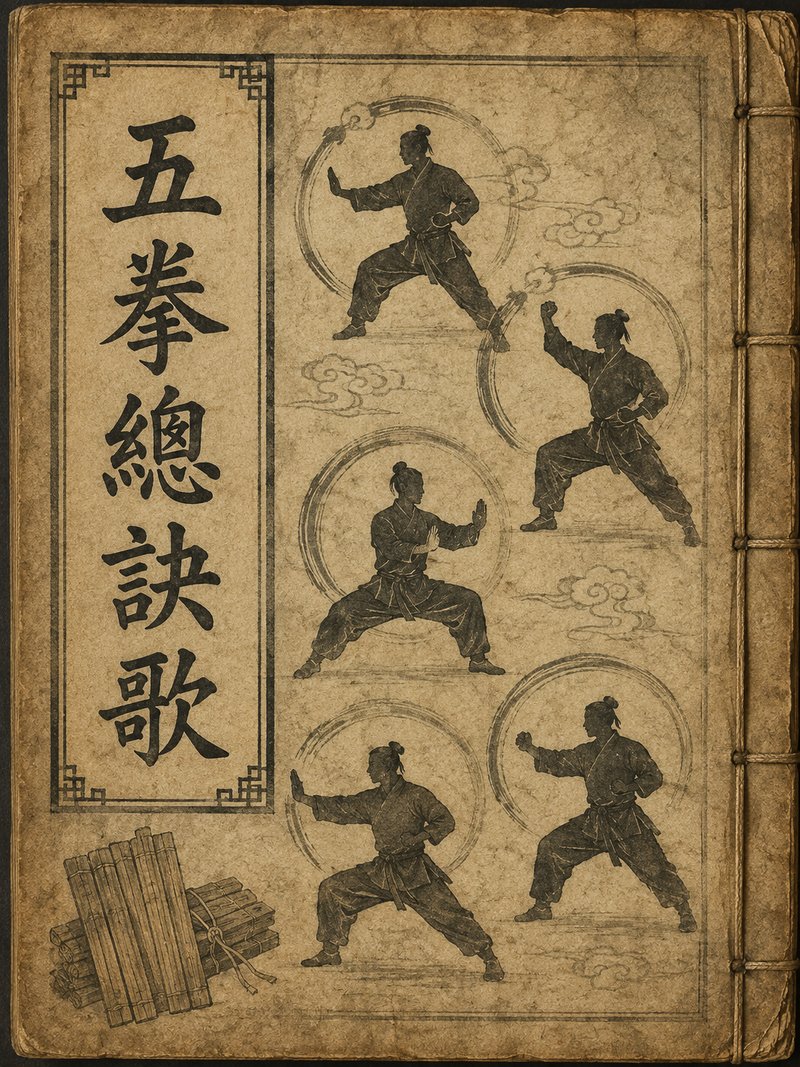 五拳總訣歌